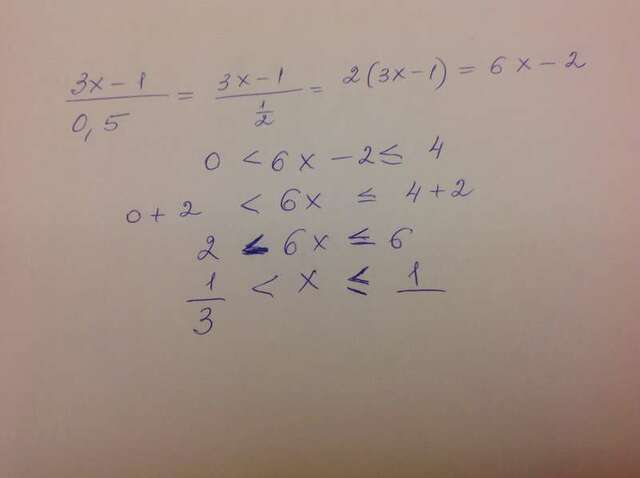 3x-1/0,5 = 3x-1/1/2 = 2(3x-1) = 6x-2
0 < 6x - 2 ≤ 4
0+2 < 6x ≤ 4+2
2 < 6x ≤ 6
1/3 < x ≤ 1